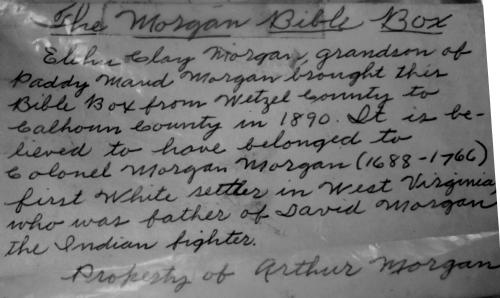 The Morgan Bible Box
Elihu Clay Morgan, grandson of
Paddy Maud Morgan brought this
Bible Box from Wetzel County to
Calhoun County in 1890. It is be-
lieved to have belonged to
Colonel Morgan Morgan (1688-1766)
first White settler in West Virginia
who was father of David Morgan
the Indian fighter.
Property of Arthur Morgan